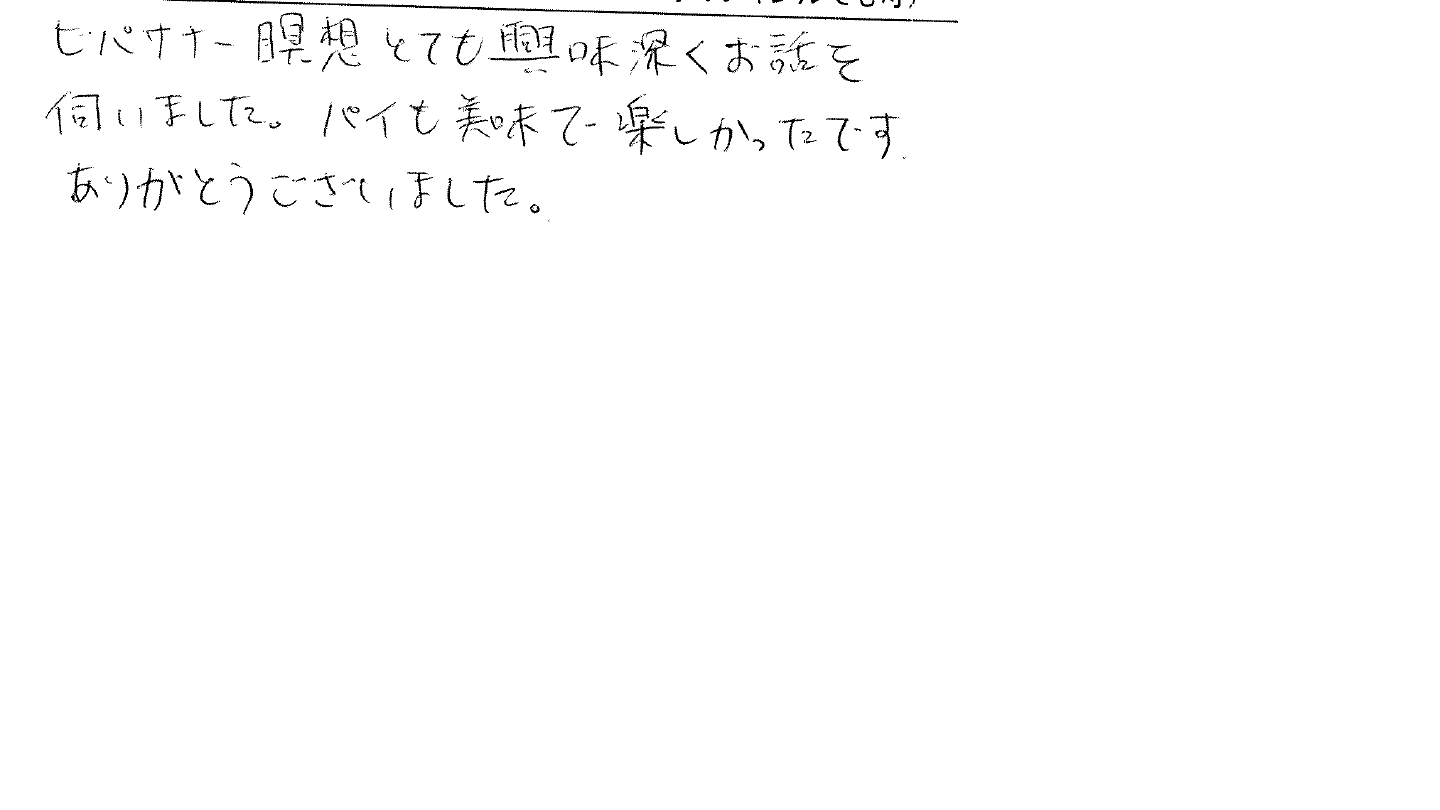 ビパサナー瞑想とても興味深くお話を
伺いました。パイも美味で楽しかったです
ありがとうございました。